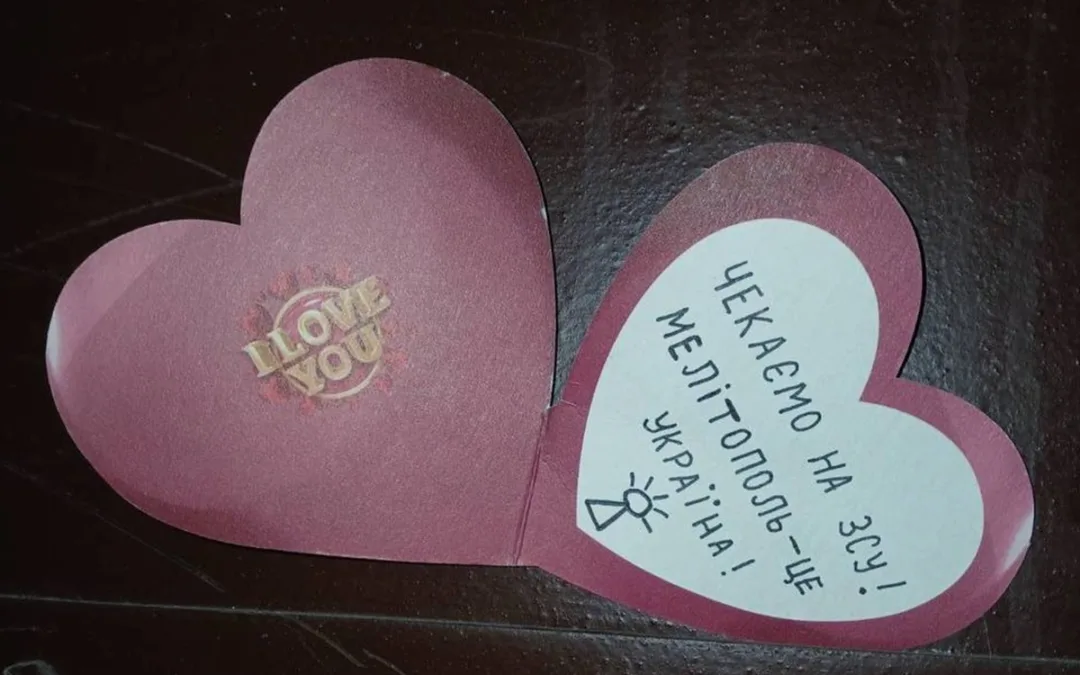 I LOVE
YOU
ЧЕКАЄМО НА ЗСУ!
МЕЛІТОПОЛЬ-ЦЕ
УКРАЇНА!